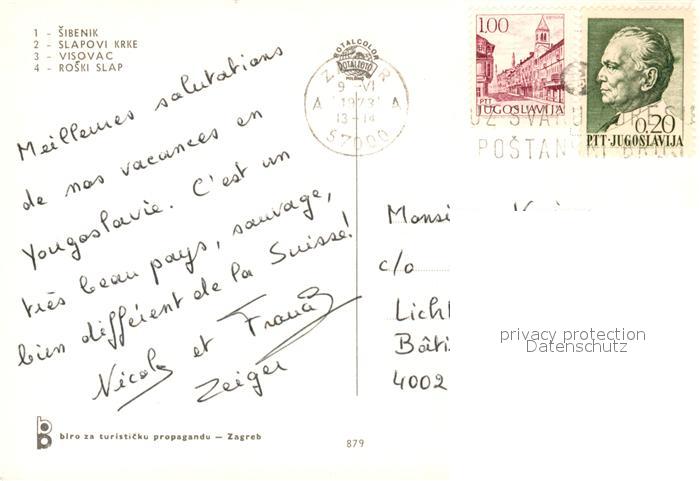 1 - ŠIBENIK
2 - SLAPOVI KRKE
3 - VISOVAC
4 - ROŠKI SLAP
Meilleures salutations
de nos vacances en
Yougoslavie. C'est un
très beau pays, sauvage,
bien différent de la Suisse!
et
Zeiger
biro za turističku propagandu — Zagreb
879
ROTALCOLOR
9 -VI
A 1973 A
13-14
57000
1.00
PTT
JUGOSLAVIJA
0,20
PTT·JUGOSLAVIJA
UZ SVAKU
POŠTANSKI BROJ
c/o
4002
privacy protection
Datenschutz